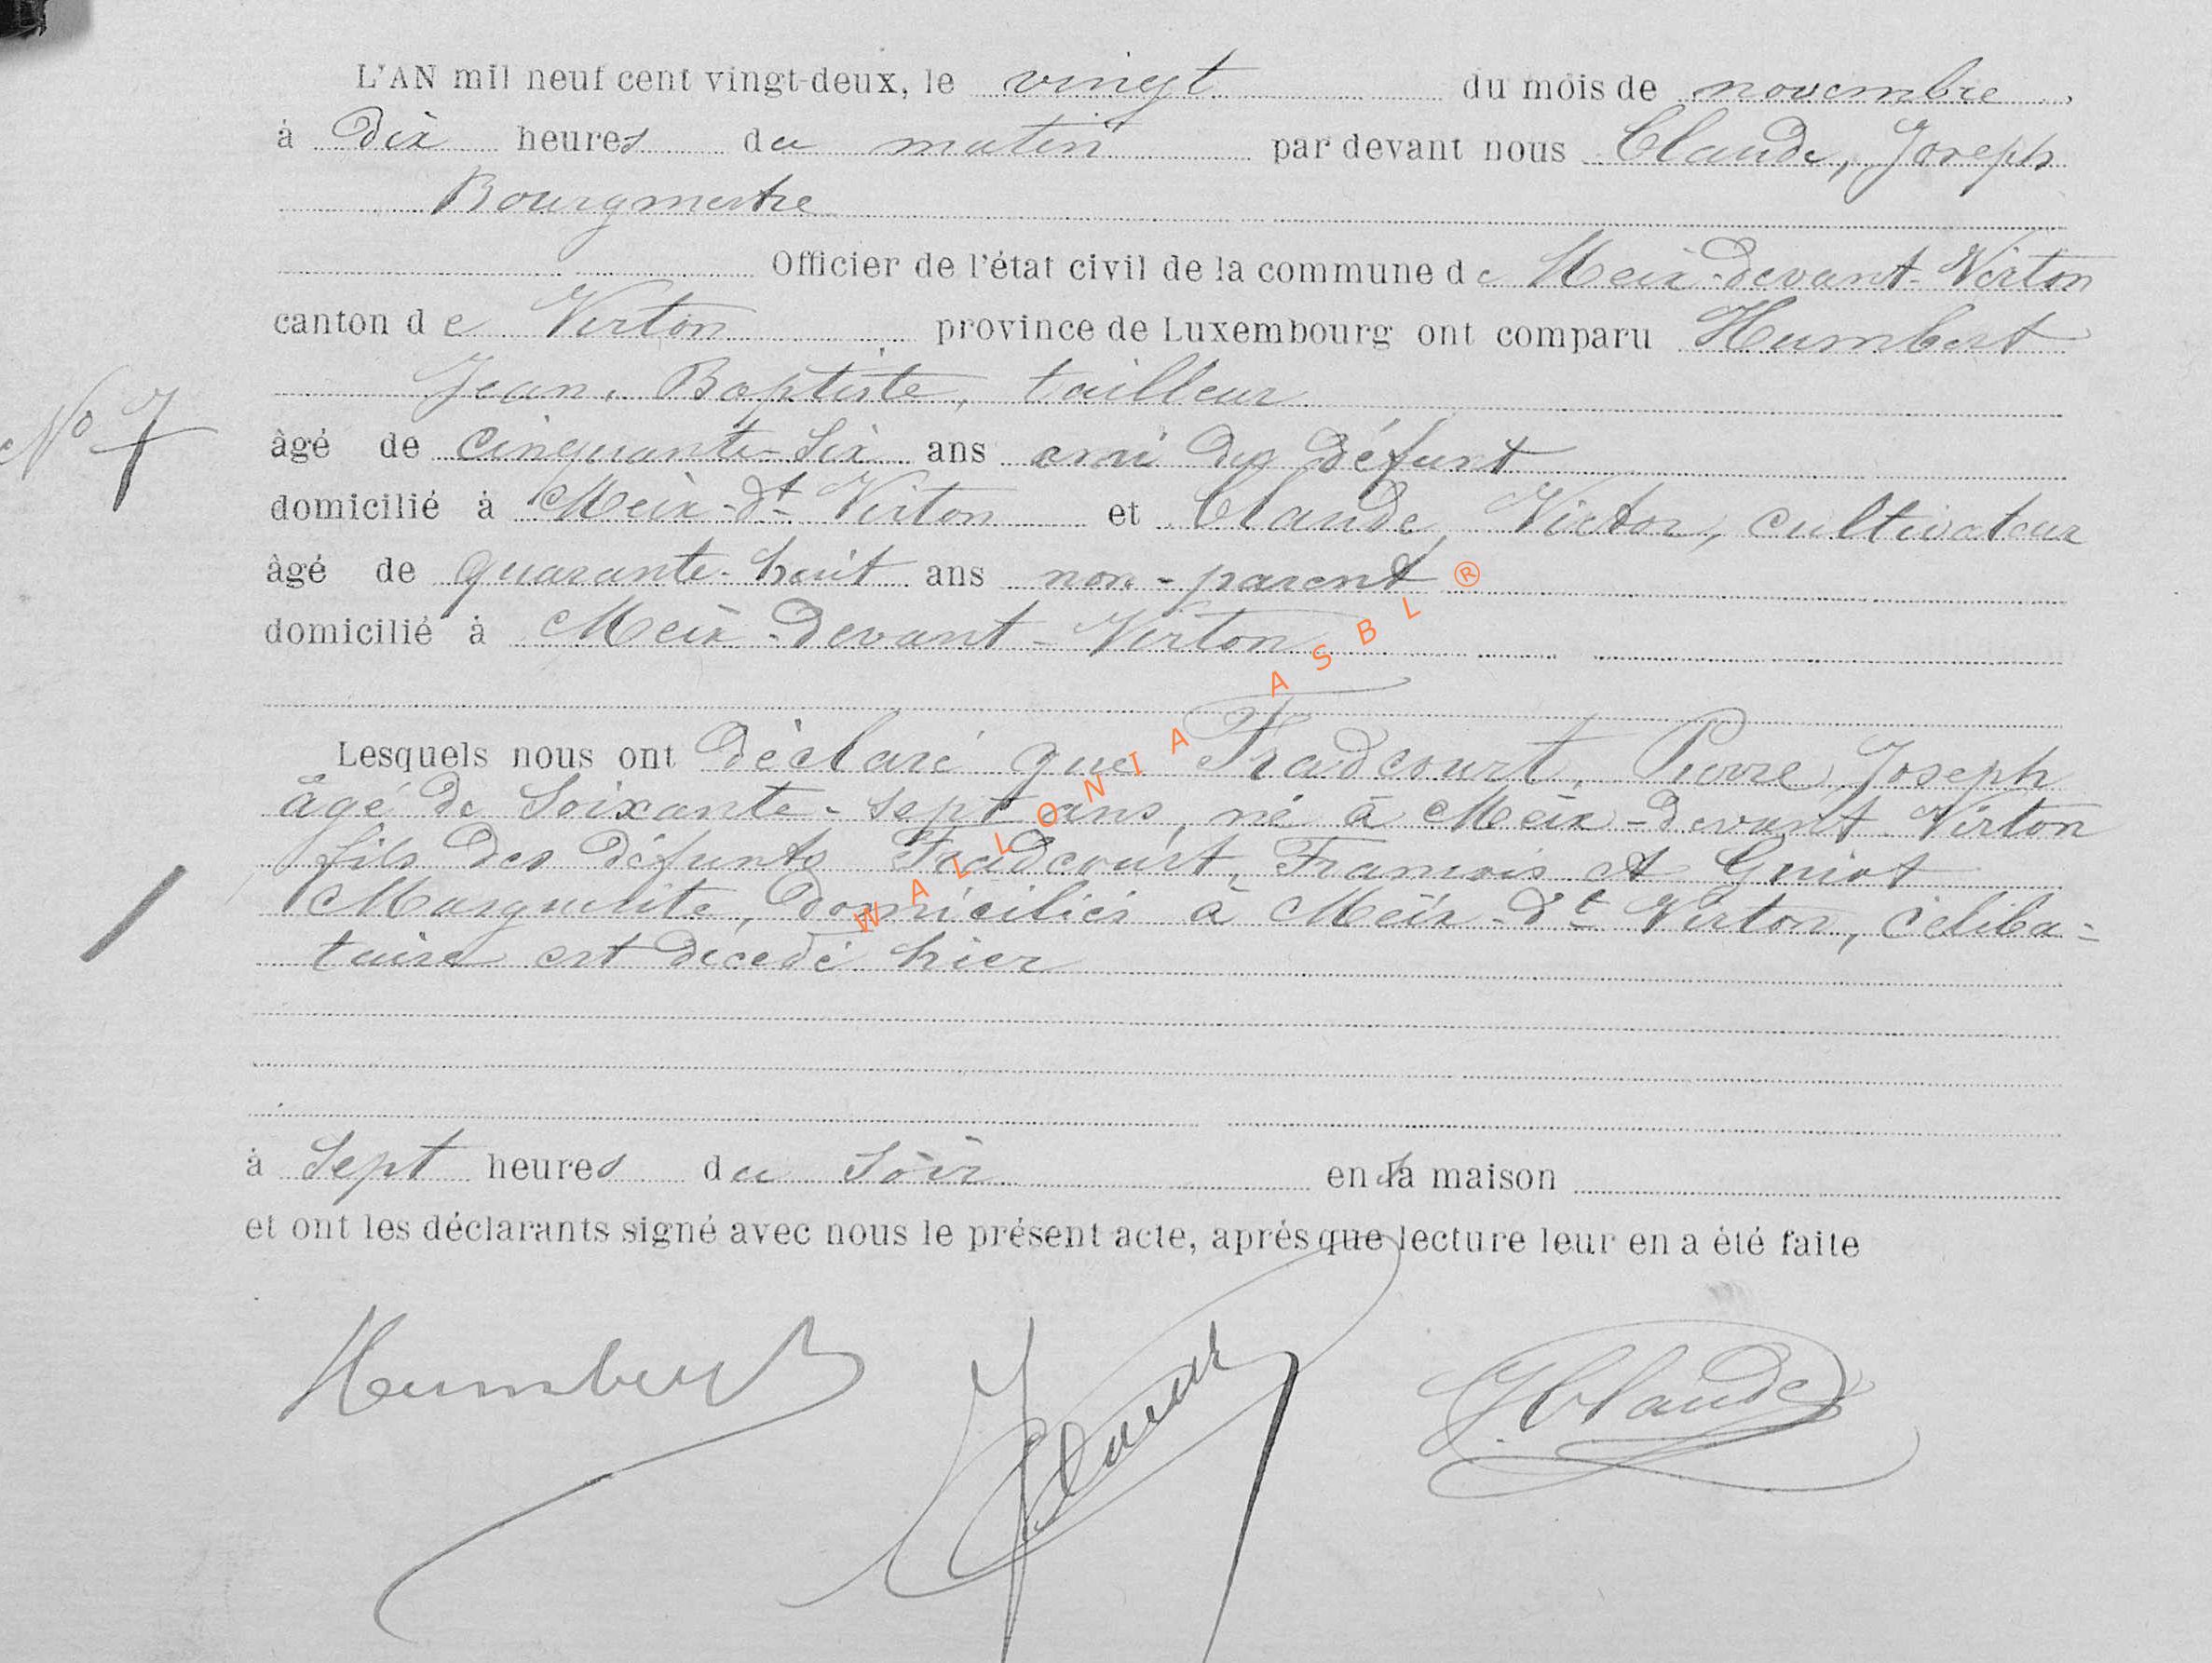 L'AN mil neuf cent vingt-deux, le vingt du mois de novembre,
à dix heures du matin par devant nous Claude, Joseph
Bourgmestre
Officier de l'état civil de la commune de Meix-devant-Virton
canton de Virton province de Luxembourg ont comparu Humbert
Jean, Baptiste, tailleur
âgé de cinquante-six ans ami du défunt
N° 7
domicilié à Meix-dt Virton et Claude, Victor, cultivateur
âgé de quarante-huit ans non-parent
domicilié à Meix-devant-Virton
WALLONIA ASBL ®
Lesquels nous ont déclaré que Fradcourt, Pierre, Joseph
âgé de soixante-sept ans, né à Meix-devant-Virton
fils des défunts Fradcourt, François et Guiot
Marguerite, domiciliés à Meix-dt Virton, céliba=
taire est décédé hier
à sept heures du soir en sa maison
et ont les déclarants signé avec nous le présent acte, après que lecture leur en a été faite
Humbert Claude J. Claude